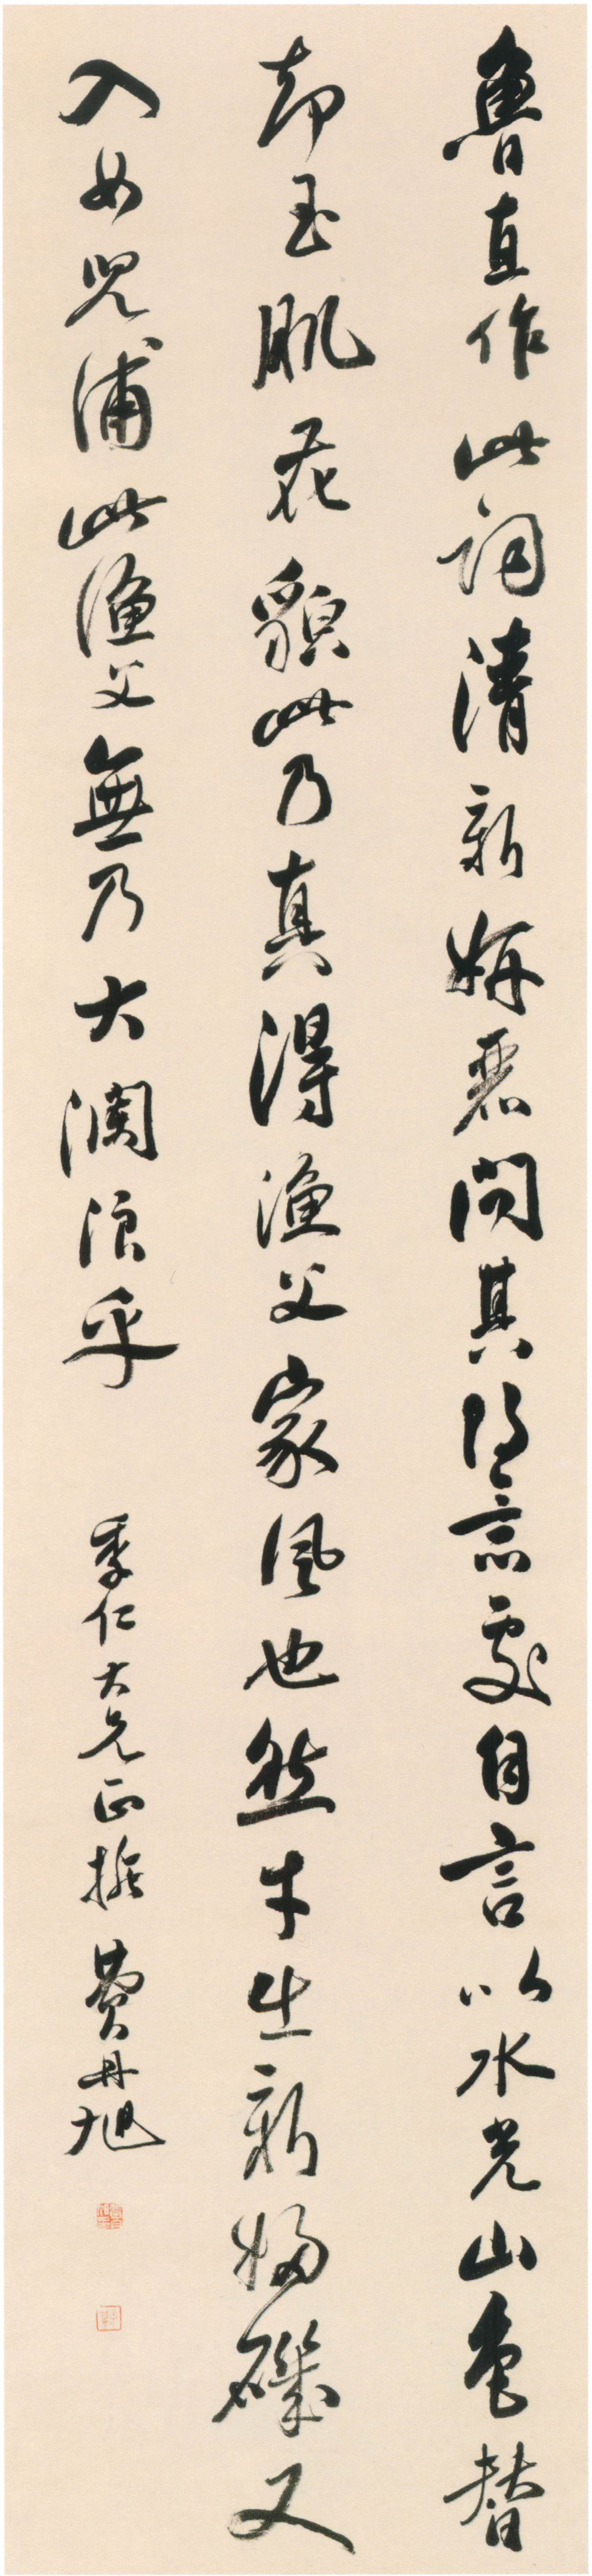 魯直作此詞清新婉麗問其得意處自言以水光山色替
却玉肌花貌此乃真得漁父家風也然才出新婦磯又
入女兒浦此漁父無乃大瀾浪乎
季仁大兄正 費丹旭